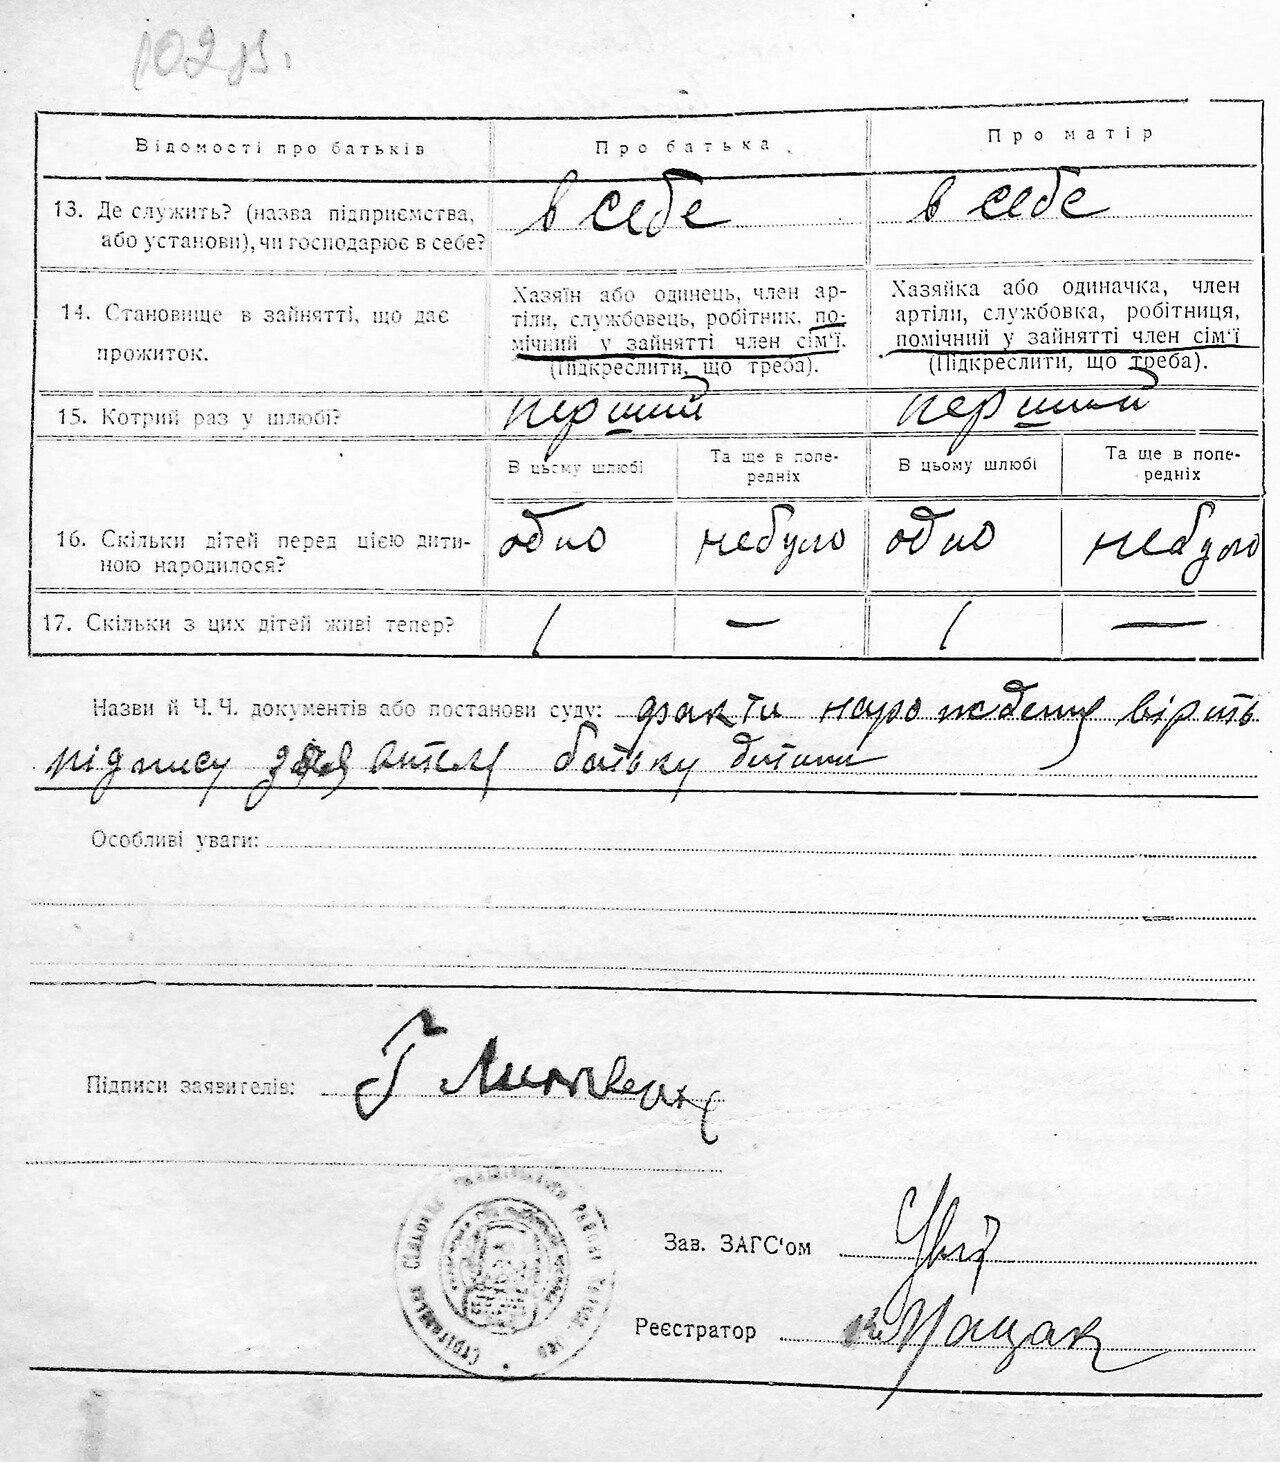 Відомості про батьків
Про батька
Про матір
13. Де служить? (назва підприємства,
або установи), чи господарює в себе?
в себе
в себе
14. Становище в зайнятті, що дає
прожиток.
Хазяїн або одинець, член ар-
тіли, службовець, робітник, по-
мічний у зайнятті член сім‘ї.
(Підкреслити, що треба).
Хазяйка або одиначка, член
артіли, службовка, робітниця,
помічний у зайнятті член сім‘ї
(Підкреслити, що треба).
15. Котрий раз у шлюбі?
перший
перший
В цьому шлюбі
Та ще в попе-
редніх
В цьому шлюбі
Та ще в попе-
редніх
16. Скільки дітей перед цією дити-
ною народилося?
одно
небуло
одно
небуло
17. Скільки з цих дітей живі тепер?
1
—
1
—
Назви й Ч.Ч. документів або постанови суду: факти народження вірить
підпису батьку дитини
Особливі уваги:
Підписи заявителів:
Зав. ЗАГС‘ом
Реєстратор